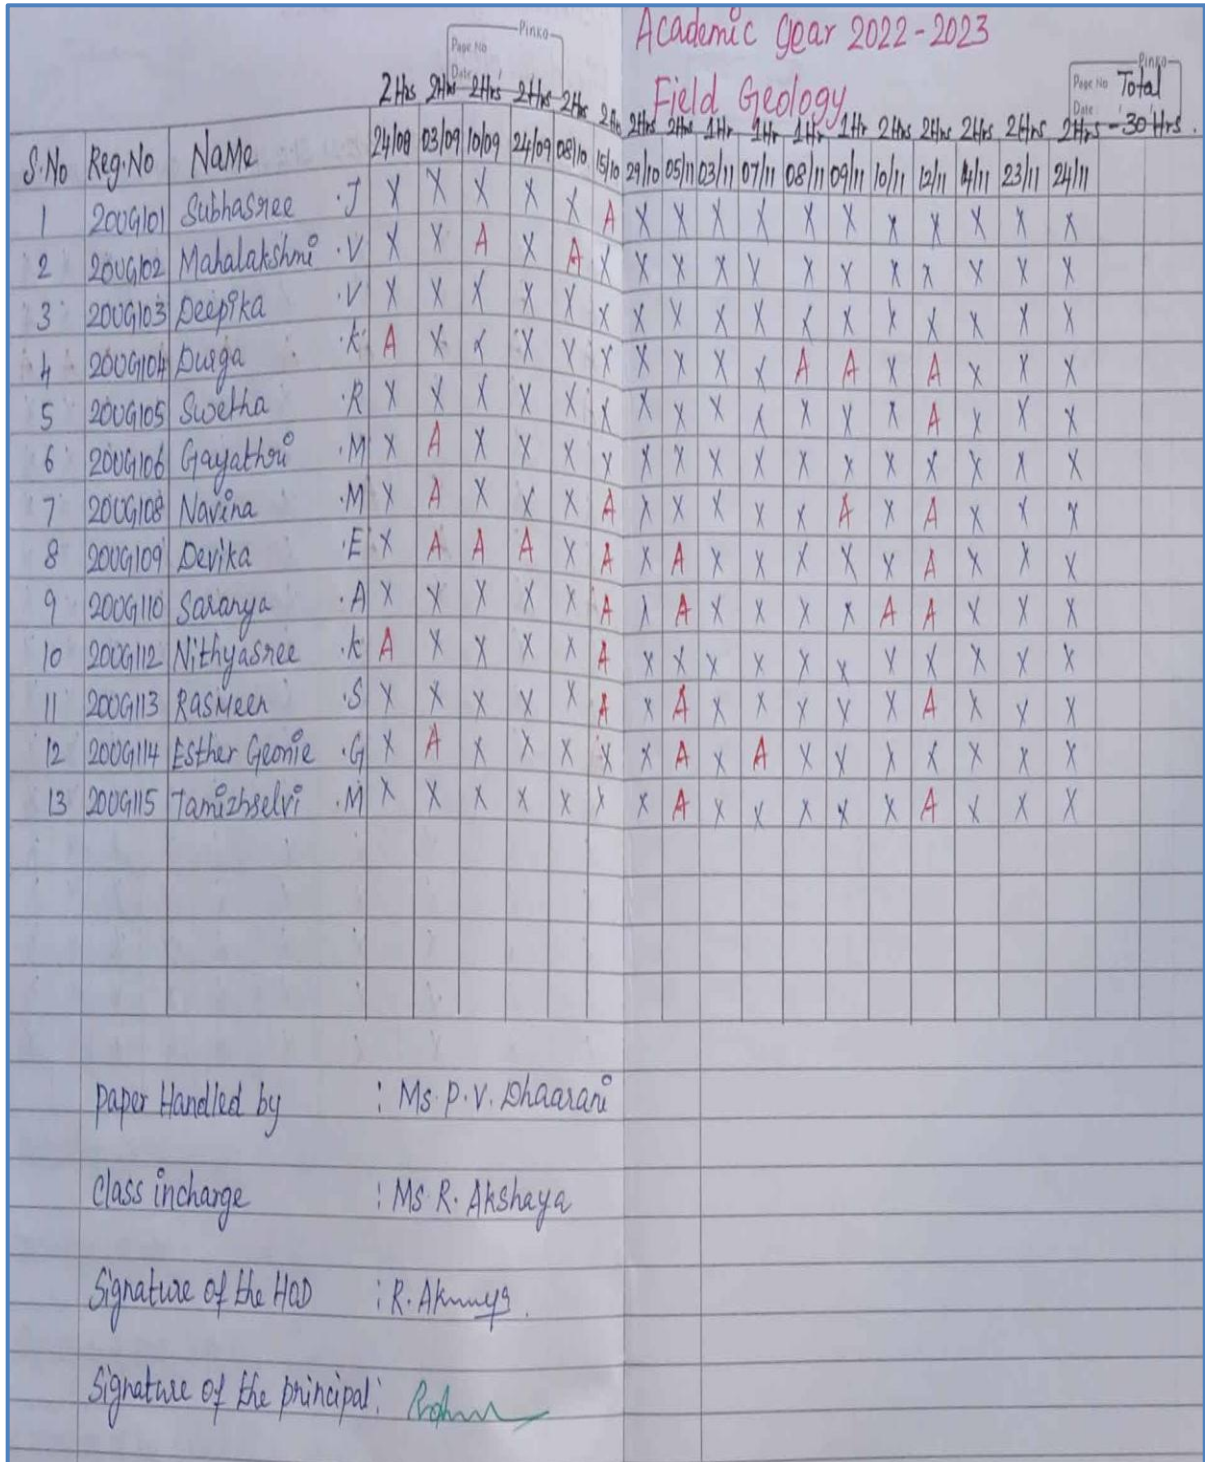 Pinko
Page No
Date
Academic Year 2022-2023
Field Geology
Pinko
Page No
Date
Total
-30 Hrs.
2Hrs 2Hrs 2Hrs 2Hrs 2Hrs 2Hrs 2Hrs 2Hrs 1Hr 1Hr 1Hr 1Hr 2Hrs 2Hrs 2Hrs 2Hrs 2Hrs
S.No Reg.No Name 24/08 03/09 10/09 24/09 08/10 15/10 29/10 05/11 03/11 07/11 08/11 09/11 10/11 12/11 14/11 23/11 24/11
1 20UG101 Subhasree .J X X X X X A X X X X X X X X X X X
2 20UG102 Mahalakshmi .V X X A X A X X X X X X X X X X X X
3 20UG103 Deepika .V X X X X X X X X X X X X X X X X X
4 20UG104 Durga .K A X X X X X X X X X A A X A X X X
5 20UG105 Swetha .R X X X X X X X X X X X X X A X X X
6 20UG106 Gayathri .M X A X X X X X X X X X X X X X X X
7 20UG108 Navina .M X A X X X A X X X X X A X A X X X
8 20UG109 Devika .E X A A A X A X A X X X X X A X X X
9 20UG110 Saranya .A X X X X X A X A X X X X A A X X X
10 20UG112 Nithyasree .K A X X X X A X X X X X X X X X X X
11 20UG113 Rasmeen .S X X X X X A X A X X X X X A X X X
12 20UG114 Esther Geonie .G X A X X X X X A X A X X X X X X X
13 20UG115 Tamizhselvi .M X X X X X X X A X X X X X A X X X
Paper Handled by : Ms. P.V. Dhaarani
Class incharge : Ms R. Akshaya
Signature of the HOD : R.
Signature of the principal: